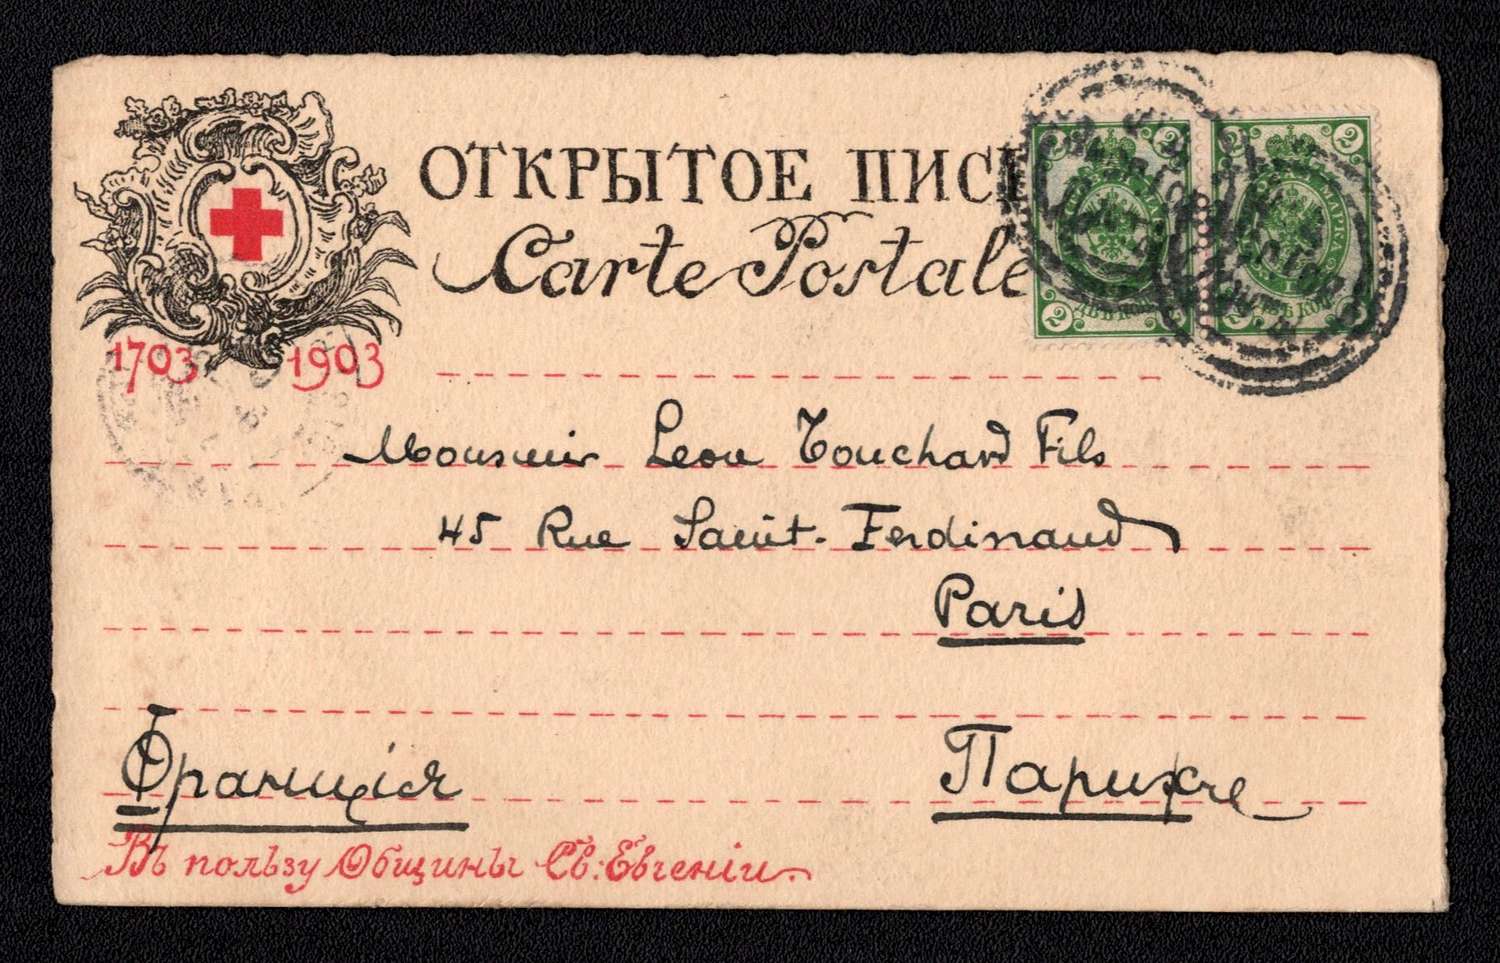 ОТКРЫТОЕ ПИС
Carte Postale
2 2
2
1703 1903
Monsieur Leon Touchard Fils
45 Rue Saint-Ferdinand
Paris
Франція Парижъ
Въ пользу Общины Св: Евгеніи